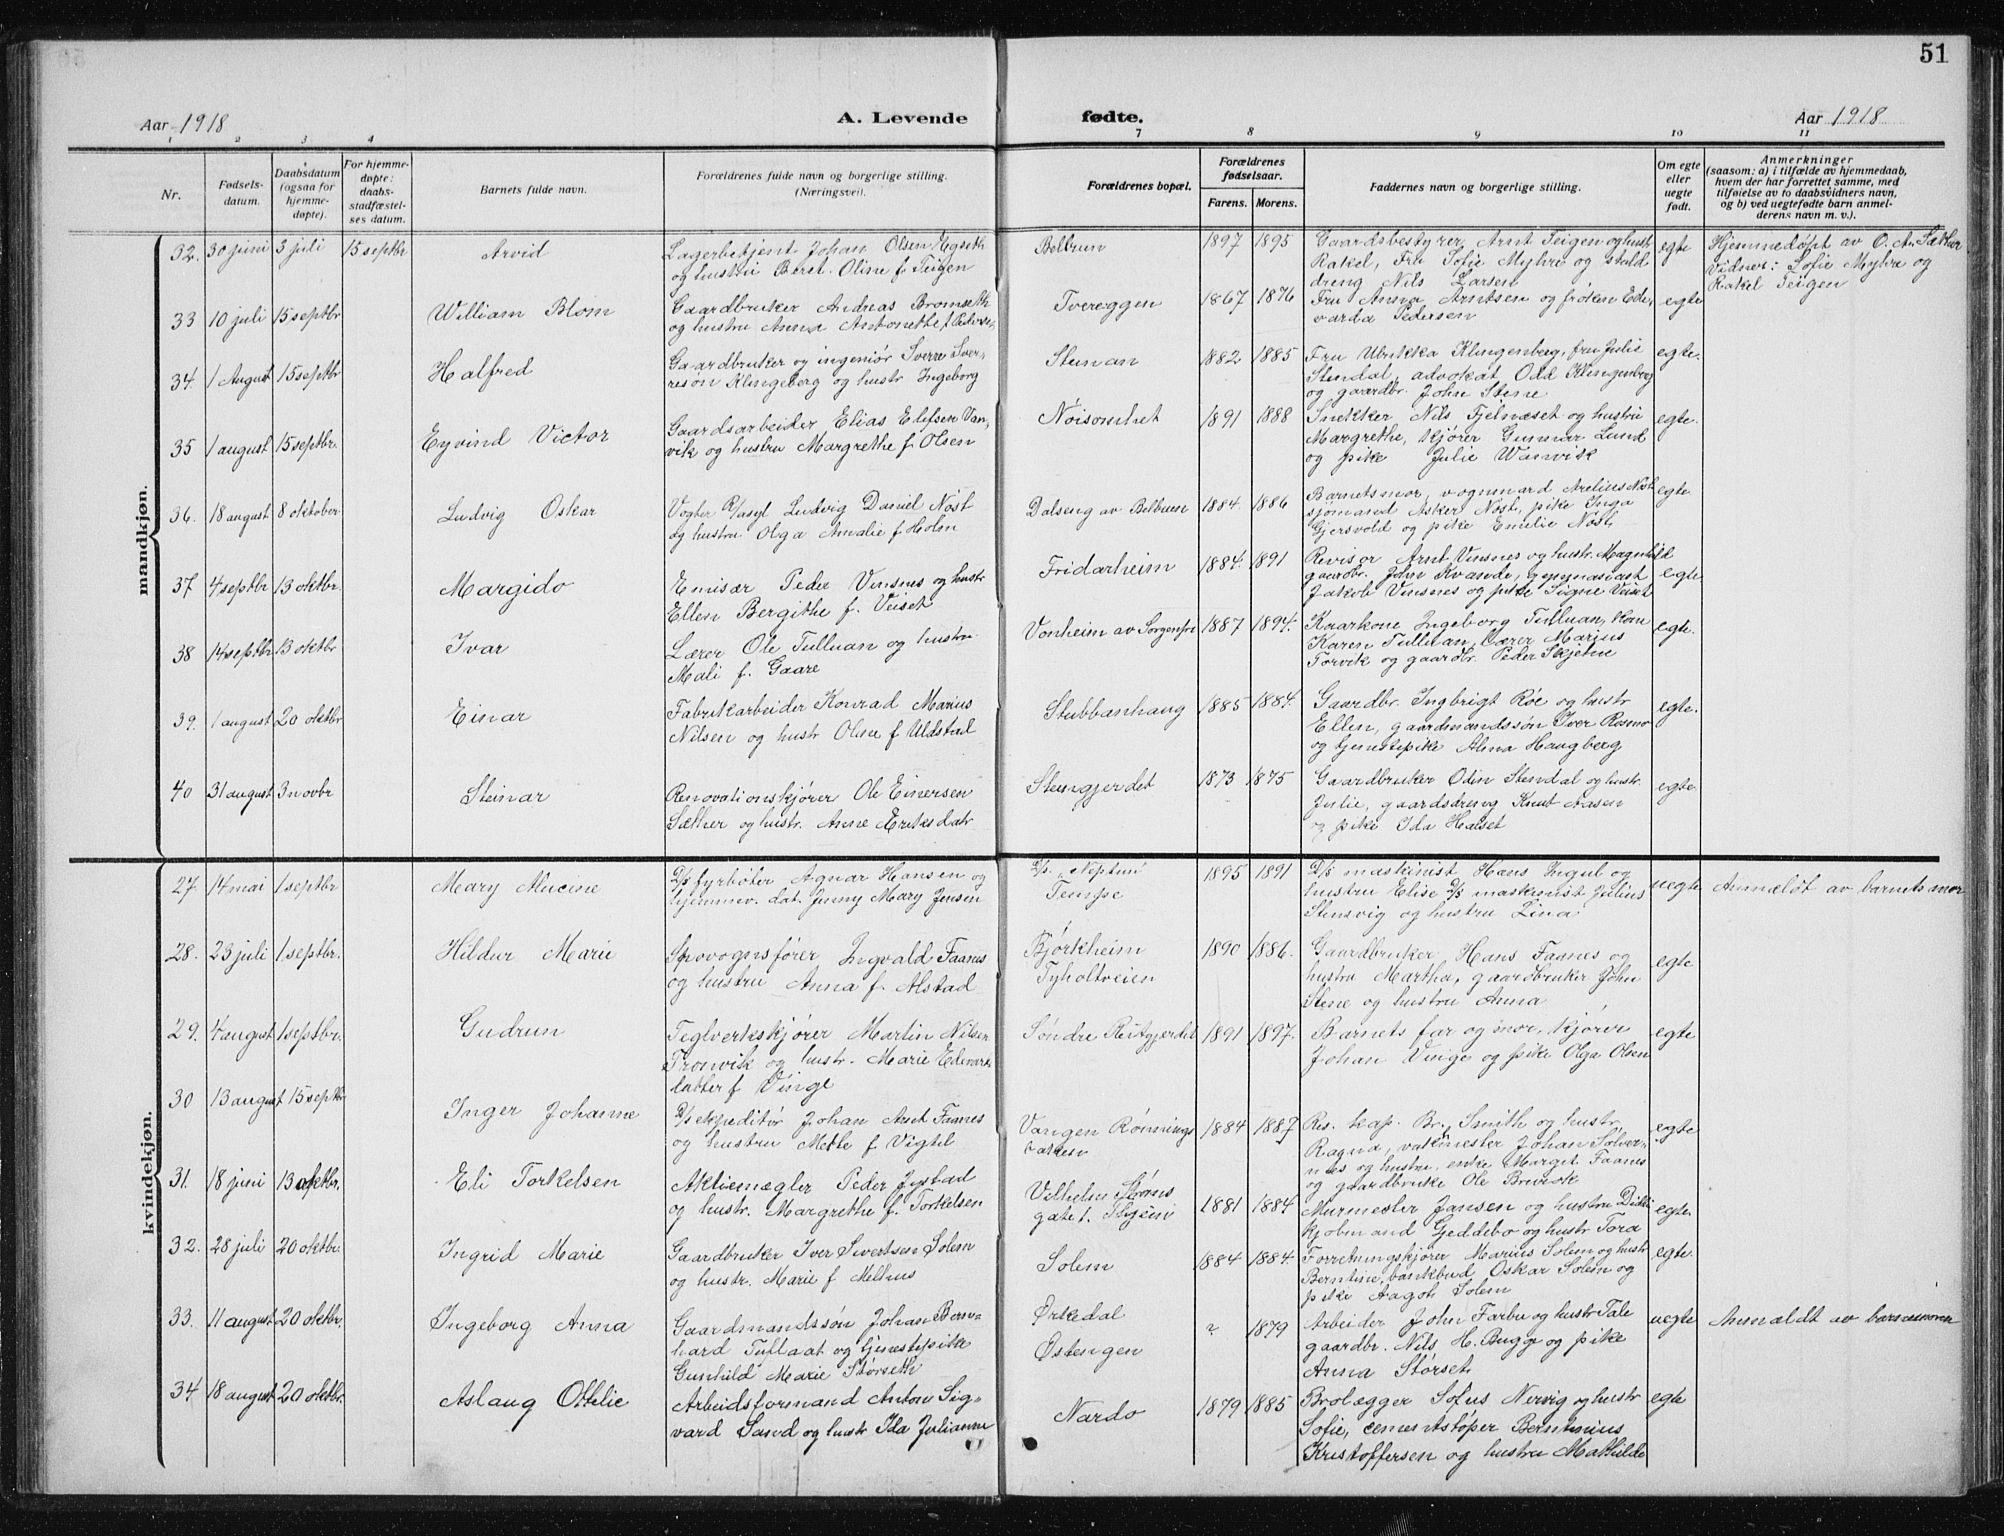 51
Aar 1918
A. Levende
fødte.
Aar 1918
1 2 3 4 7 8 9 10 11
Nr.
Fødsels-
datum.
Daabsdatum
(ogsaa for
hjemme-
døpte).
For hjemme-
døpte:
daabs-
stadfæstel-
ses datum.
Barnets fulde navn.
Forældrenes fulde navn og borgerlige stilling.
(Næringsvei).
Forældrenes bopæl.
Forældrenes
fødselsaar.
Farens. Morens.
Faddernes navn og borgerlige stilling.
Om egte
eller
uegte
født.
Anmerkninger
(saasom: a) i tilfælde av hjemmedaab,
hvem der har forrettet samme, med
tilføielse av to daabsvidners navn,
og b) ved uegtefødte barn anmel-
derens navn m. v.).
mandkjøn.
32. 30 juni 3 juli 15 septbr Arvid
Lagerbetjent Johan Olsen Egseth
og hustru Beret Oline f. Teigen
Belbuen 1897 1895
Gaardsbestyrer Arnt Teigen og hust
Rakel, Fru Sofie Myhre og stald
dreng Nils Larsen
egte
Hjemmedøpt av O. A. Sæther
Vidner: Sofie Myhre og
Rakel Teigen
33 10 juli 15 septbr William Blom
Gaardbruker Andreas Bromseth
og hustru Anna Antonette f. Peders
Tvereggen 1867 1876
Fru Anna Arntsen og frøken Ed-
varda Pedersen
egte
34. 1 August 15 septbr Halfred
Gaardbruker og ingeniør Sverre Sver-
resøn Klingeberg og hustr Ingeborg
Stenan 1882 1885
Fru Ulrikka Klingenberg, fru Julie
Stendal, advokat Odd Klingenberg
og gaardbr. John Stene
egte.
35 1 august 15 septbr. Eyvind Victor
Gaardsarbeider Elias Elefsen Van-
vik og hustru Margrethe f. Olsen
Nøisomhet 1891 1888
Snekker Nils Fjelnæset og hustru
Margrethe, kjører Gunnar Lund
og pike Julie Wanvik
egte.
36. 18 august 8 oktober Ludvig Oskar
Vogter R/asyl Ludvig Daniel Nøst
og hustru Olga Amalie f Holm
Dalseng av Belbuen 1884 1886
Barnets mor, vognmand Arelius Nøst
sjømand Asker Nøst, pike Inga
Gjersvold og pike Emilie Nøst
egte
37 4 septbr 13 oktbr. Margido
Emisær Peder Vinsnes og hustr
Ellen Bergithe f. Veiset
Fridarheim 1884. 1891
Revisor Arnt Vinsnes og hustr. Magnhild
gaardbr. John Kvande, gymnasiast
Jakob Vinsnes og pike Signe Veiset
egte
38 14 septbr 13 oktbr Ivar
Lærer Ole Tulluan og hustru
Mali f. Gaare
Vonheim av Sorgenfri 1887 1894.
Kaarkone Ingeborg Tulluan, Kone
Karen Tulluan, Lærer Marius
Torvik og gaardbr. Peder Skjetne
egte.
39. 1 august 20 oktbr Einar
Fabrikarbeider Konrad Marius
Nilsen og hustr Oline f Uldstad
Stubbanhaug 1885 1884.
Gaardbr. Ingbrigt Røe og hustr
Ellen, gaardmandssøn Iver Rosmo
og tjenestepike Alma Haugberg
egte.
40 31 august 3 novbr Steinar
Renovationskjører Ole Einersen
Sæther og hustr. Anne Eriksdatr
Stengjerdet 1873 1875
Gaardbruker Odin Stendal og hustr.
Julie, gaardsdreng Knut Aasen
og pike Ida Halset
egte.
kvindekjøn.
27. 14 mai 1 septbr Mary Alucine
D/s fyrbøter Agnar Hansen og
hjemmev. dat. Jenny Mary Jensen
D/s. "Neptun"
Tempe
1895 1891
D/s maskinist Hans Ingul og
hustru Elise D/s maskinist Julius
Stensvig og hustru Lina
uegte
Anmeldt av barnets mor
28. 23 juli 1 septbr. Hildur Marie
Sporvognsfører Ingvald Faanes
og hustru Anna f. Alstad
Bjørkheim
Tyholtveien
1890 1886.
Gaardbruker Hans Faanes og
hustru Martha, gaardbruker John
Stene og hustru Anna
egte
29. 4 august 1 septbr. Gudrun
Teglverkskjører Martin Nilsen
Tronvik og hustr. Marie Edvards
datter f Vinge
Søndre Reitgjerdet 1891 1897.
Barnets far og mor, kjører
Johan Vinge og pike Olga Olsen
egte
30 13 august 15 septbr Inger Johanne
D/s ekspeditør Johan Arnt Faanes
og hustru Mette f Vigtil
Vangen Rønnings
bakken
1884 1887
Res. kap. Br. Smith og hustr
Ragna, vakmester Johan Solver-
nes og hustru, enke Margit Faanes
og gaardbruke Ole Brevik
egte
31. 18 juni 13 oktbr. Eli Torkelsen
Aktiemægler Peder Jystad
og hustr. Margrethe f. Torkelsen
Vilhelm Storms
gate 1. Thjem
1881 1884
Murmester Jansen og hustru
kjøbmand Geddebo og hustr Tora
egte.
32. 28 juli 20 oktbr. Ingrid Marie
Gaardbruker Iver Sivertsen Solem
og hustr. Marie f Melhus
Solem 1884 1884.
Forretningskjører Marius Solem og hustr
Berntine, bankbud Oskar Solem og
pike Aagot Solem
egte.
33. 11 august 20 oktbr. Ingeborg Anna
Gaardmandssøn Johan Bern-
hard Tuflaat og tjenestepike
Gunhild Marie Størseth
Ørkedal
Østengen
? 1879
Arbeider John Farbu og hustr Tale
gaardbr. Nils H. Bugge og pike
Anna Størset
uegte
Anmeldt av barnemoren
34 18 august 20 oktbr. Aslaug Ottelie
Arbeidsformand Anton Sig-
vard Sand og hustr Ida Julianne
Nardo 1879 1885
Brolægger Sofus Nervig og hustr
Sofie, cementstøper Berntinius
Kristoffersen og hustru Mathilde
egte